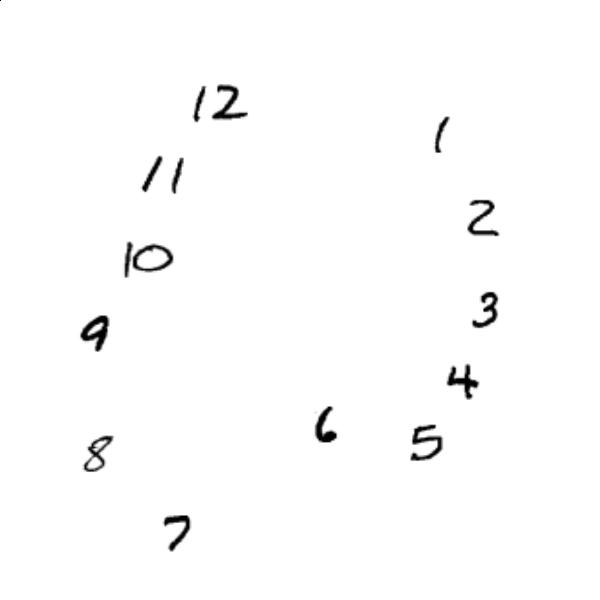 12
1
11
2
10
3
9
4
6
5
8
7